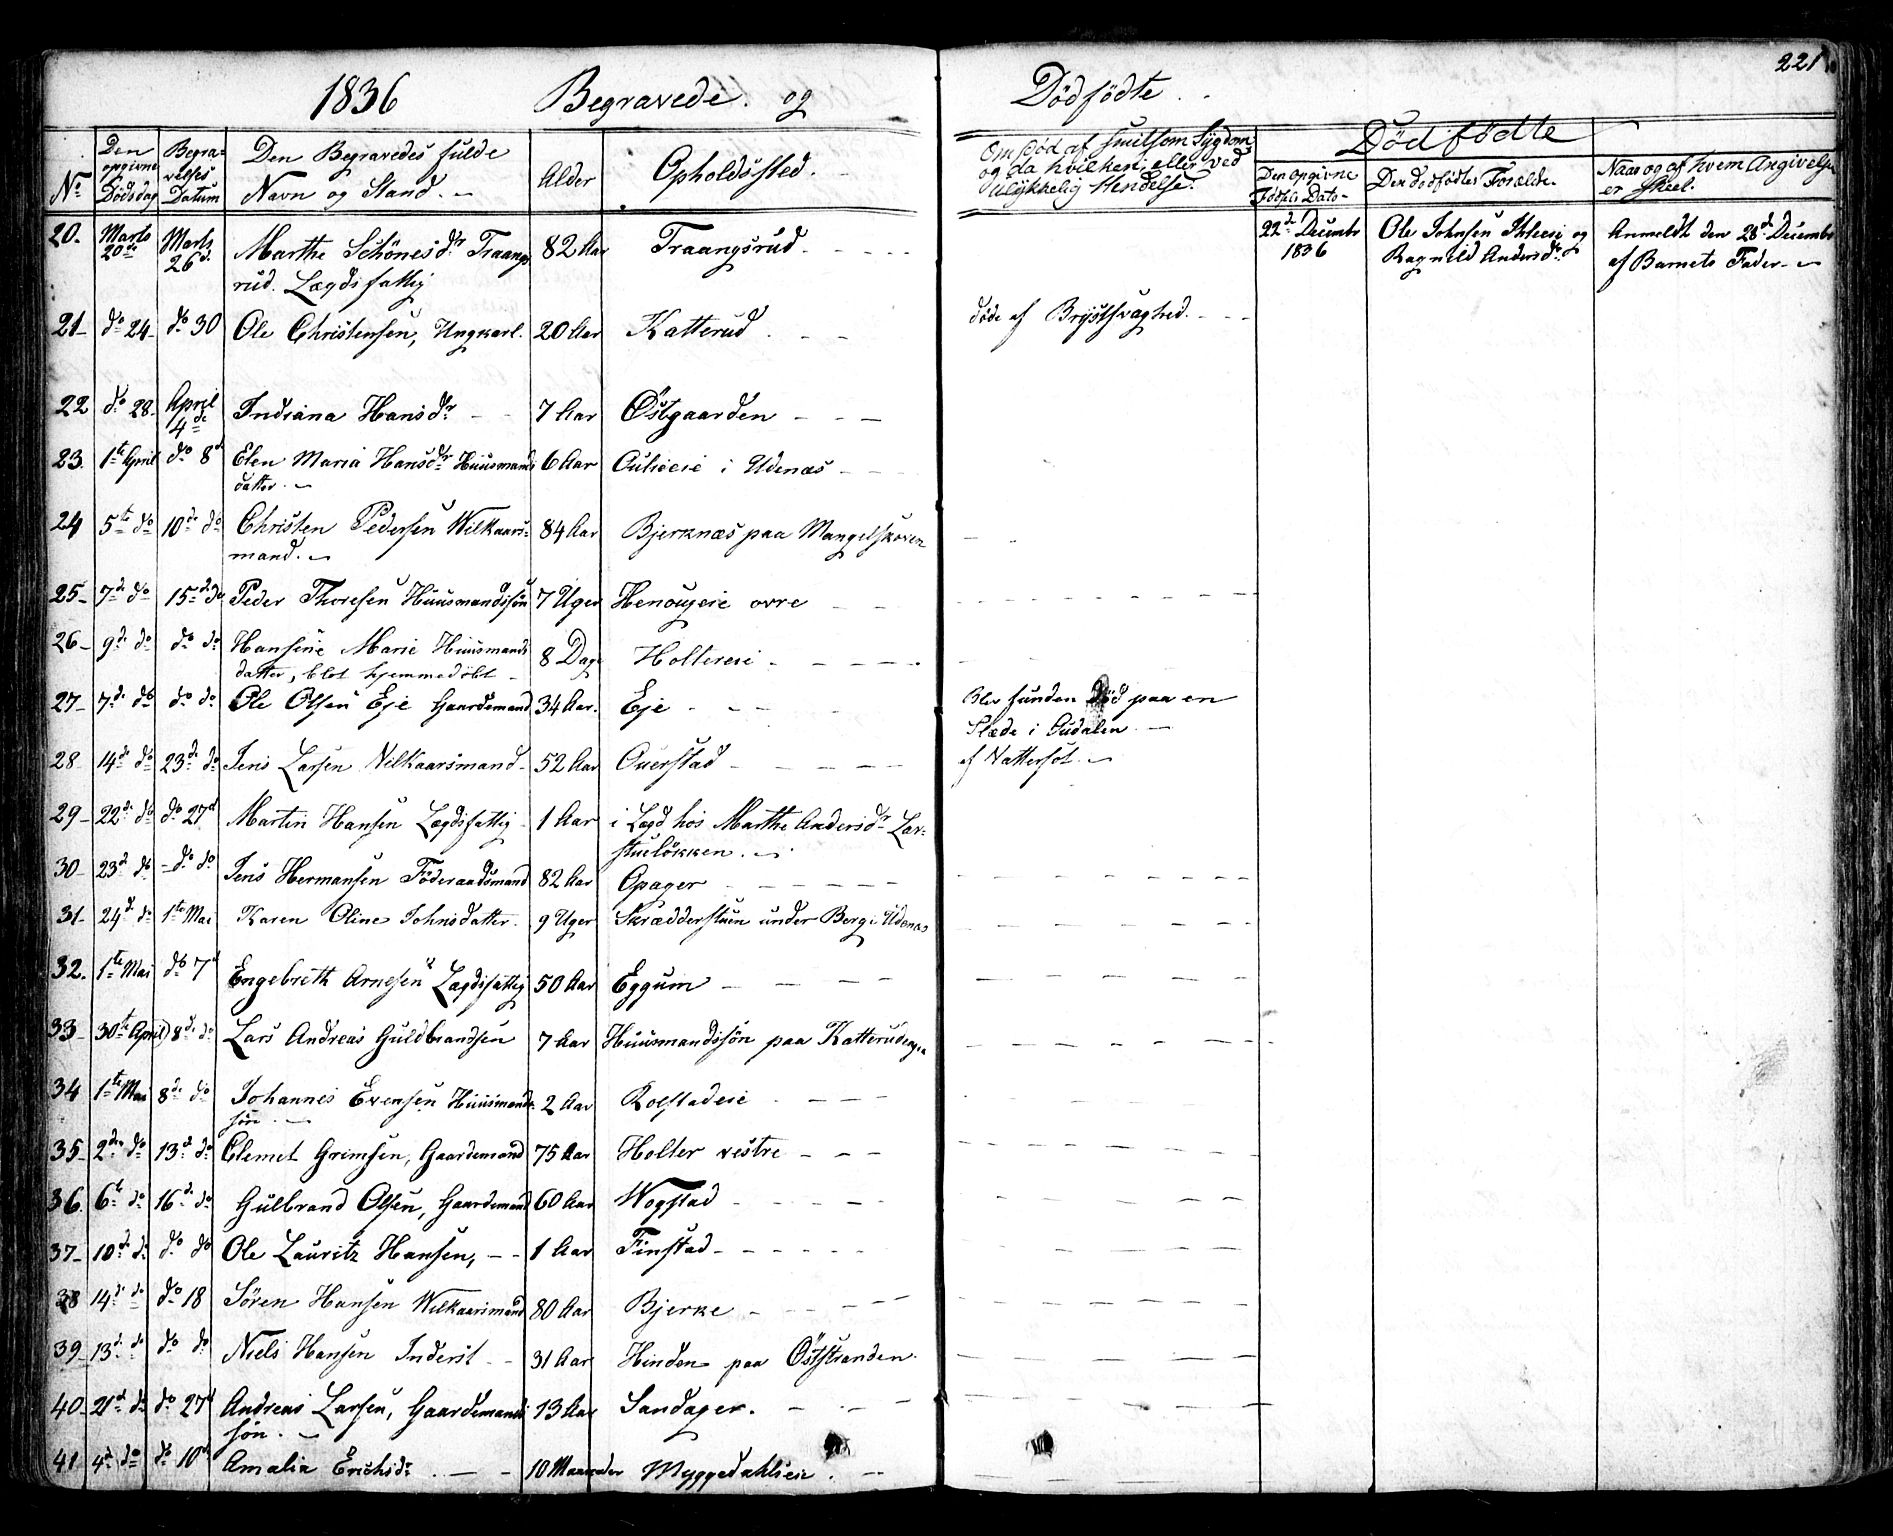 221
1836 Begravede og Dødfødte
Nº | Den opgivne Dødsdag | Begravelses Datum | Den Begravedes fulde Navn og Stand. | Alder | Opholdssted. | Om død af smitsom Sygdom og da hvilken; eller ved ulykkelig Hendelse. | Dødfødte
Den Opgivne Fødsels Dato | Den dødfødtes Forælde. | Naar og af hvem Angivelsen er skeet.
20. | Marts 20de | Marts 26d. | Marthe Schönesdr. Traangsrud. Lægdsfattig | 82 Aar | Traangsrud. | | 22d. Decembr 1836 | Ole Johnsen og Ragnild Andersdr. | Anmeldt den 28d. Decembr af Barnets Fader
21 | do 24 | do 30 | Ole Christensen, Ungkarl. | 20 Aar | Katterud | døde af Brystsvaghed.
22 | do 28. | April 4de | Indiana Hansdr. | 7 Aar | Østgaarden
23. | 1te April | do 8d | Elen Maria Hansdr. Huusmandsdatter. | 6 Aar | i Udenæs
24 | 5te do | 10de do | Christen Pedersen Wilkaarsmand. | 84 Aar | Bjerknæs paa Mangelskoven
25 | 7d do | 15d do | Peder Thoresen Huusmandssøn | 7 Uger | øvre
26 | 9d. do | do do | Hansine Marie Huusmandsdatter, blot hjemmedøbt | 8 Dage | Holtereie
27 | 7d. do | do do | Ole Olsen Eje Gaardemand | 34 Aar. | Eje | Blev funden død paa en Slæde i
28 | 14d. do | 23de do | Jens Larsen Vilkaarsmand | 52 Aar | Ouerstad | af Vattersot.
29 | 22de do | do 27d | Martin Hansen Lægdsfattig | 1 Aar | i Lægd hos Marthe Andersdr.
30 | 23d do | do do | Jens Hermansen Föderaadsmand | 82 Aar | Opager
31 | 24d. do | 1te Mai | Karen Oline Johnsdatter. | 9 Uger | Skrædderstuen under Berg i Udenæs
32. | 1te Mai | do 7d | Engebreth Arnesen Lægdsfattig | 50 Aar | Eggum
33 | 30te April | 8de do | Lars Andreas Guldbrandsen | 7 Aar | Huusmandssøn paa Katterudeie
34 | 1te Mai | 8de do | Johannes Evensen Huusmandssøn | 2 Aar | Rolstadeie
35 | 2den do | 13d do | Clemet Grimsen, Gaardemand | 75 Aar | Holter vestre
36. | 6te do | 16de do | Gulbrand Olsen, Gaardemand | 60 Aar | Wogstad
37 | 10de do | do do | Ole Lauritz Hansen, | 1 Aar | Finstad
38 | 14de do | do 18 | Sören Hansen Wilkaarsmand | 80 Aar | Bjerke
39 | 13d. do | do do | Niels Hansen Inderst | 31 Aar | Hinden paa Öststranden
40 | 21d do | do 27d | Andreas Larsen, Gaardemandssøn. | 13 Aar | Sandager.
41 | 4d. do | do 10d | Amalia Erichsdr. | 10 Maaneder | Myggedahlseie.